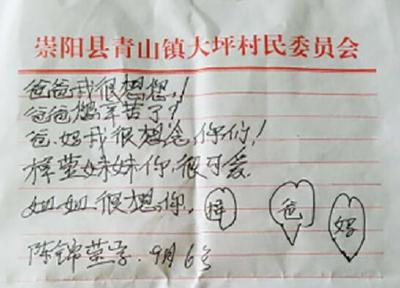 崇阳县青山镇大坪村民委员会
爸爸我很想您!
爸爸您辛苦了!
爸.妈我很想念你们!
梓萱妹妹你很可爱.
姐姐很想你. 梓 爸 妈
陈锦萱写. 9月6号